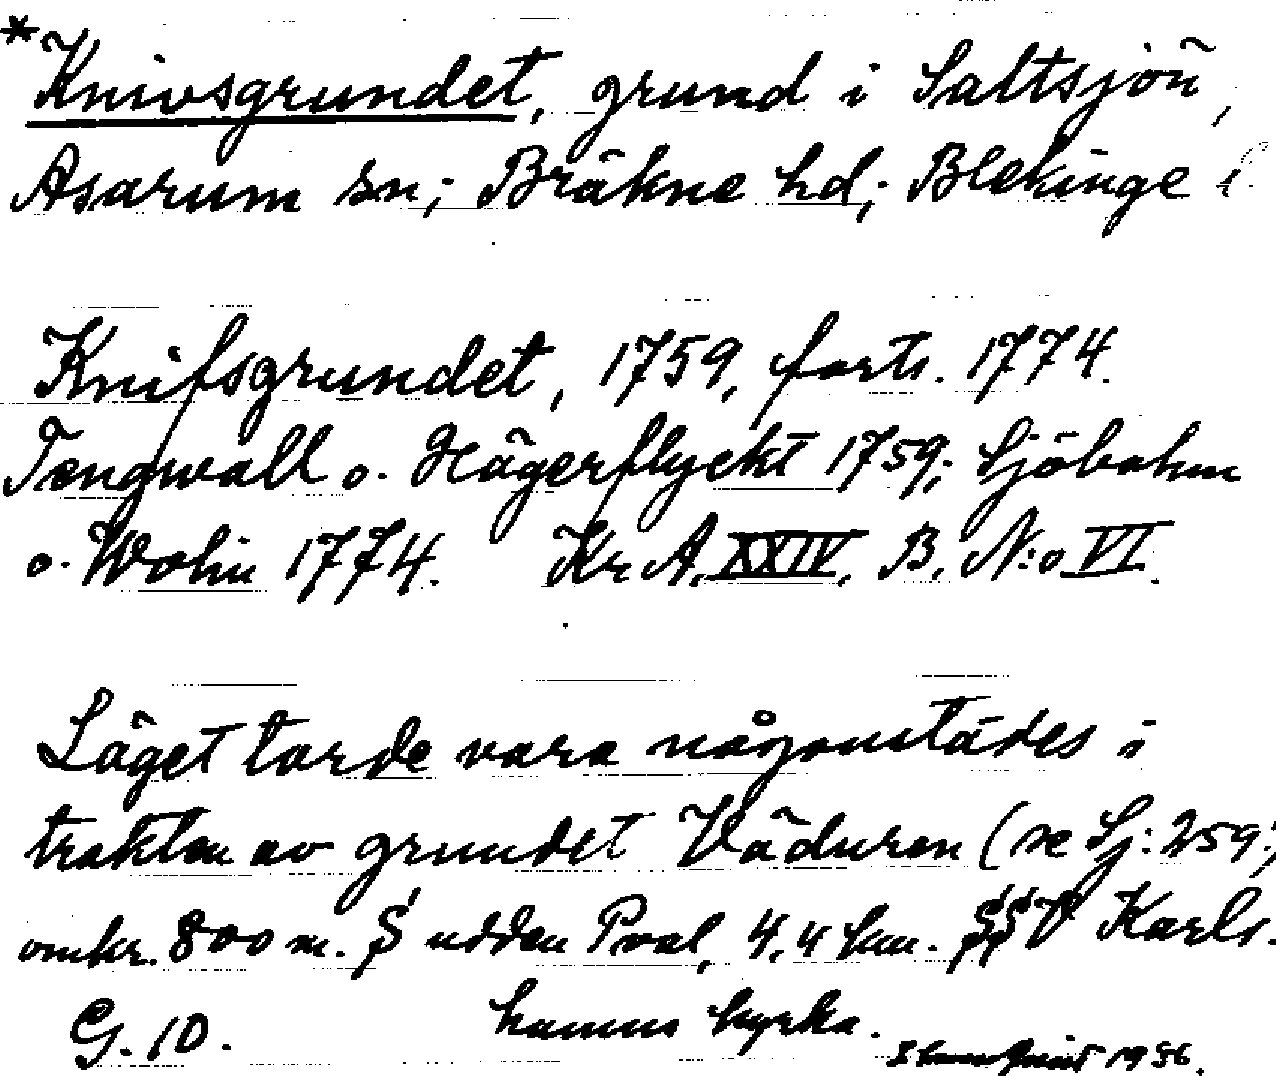 *Knivsgrundet, grund i Saltsjön,
Asarum sn; Bräkne hd; Blekinge l.
Knifsgrundet, 1759, forts. 1774.
Tengwall o. Hägerflyckt 1759; Sjöbohm
o. Wolin 1774. Kr A, XXIV, B, N:o VI.
Läget torde vara någonstädes i
trakten av grundet Väduren (se Sj: 259;
omkr. 800 m. S udden Pval, 4,4 km. SSV Karls-
hamns kyrka.
G. 10.
1956.